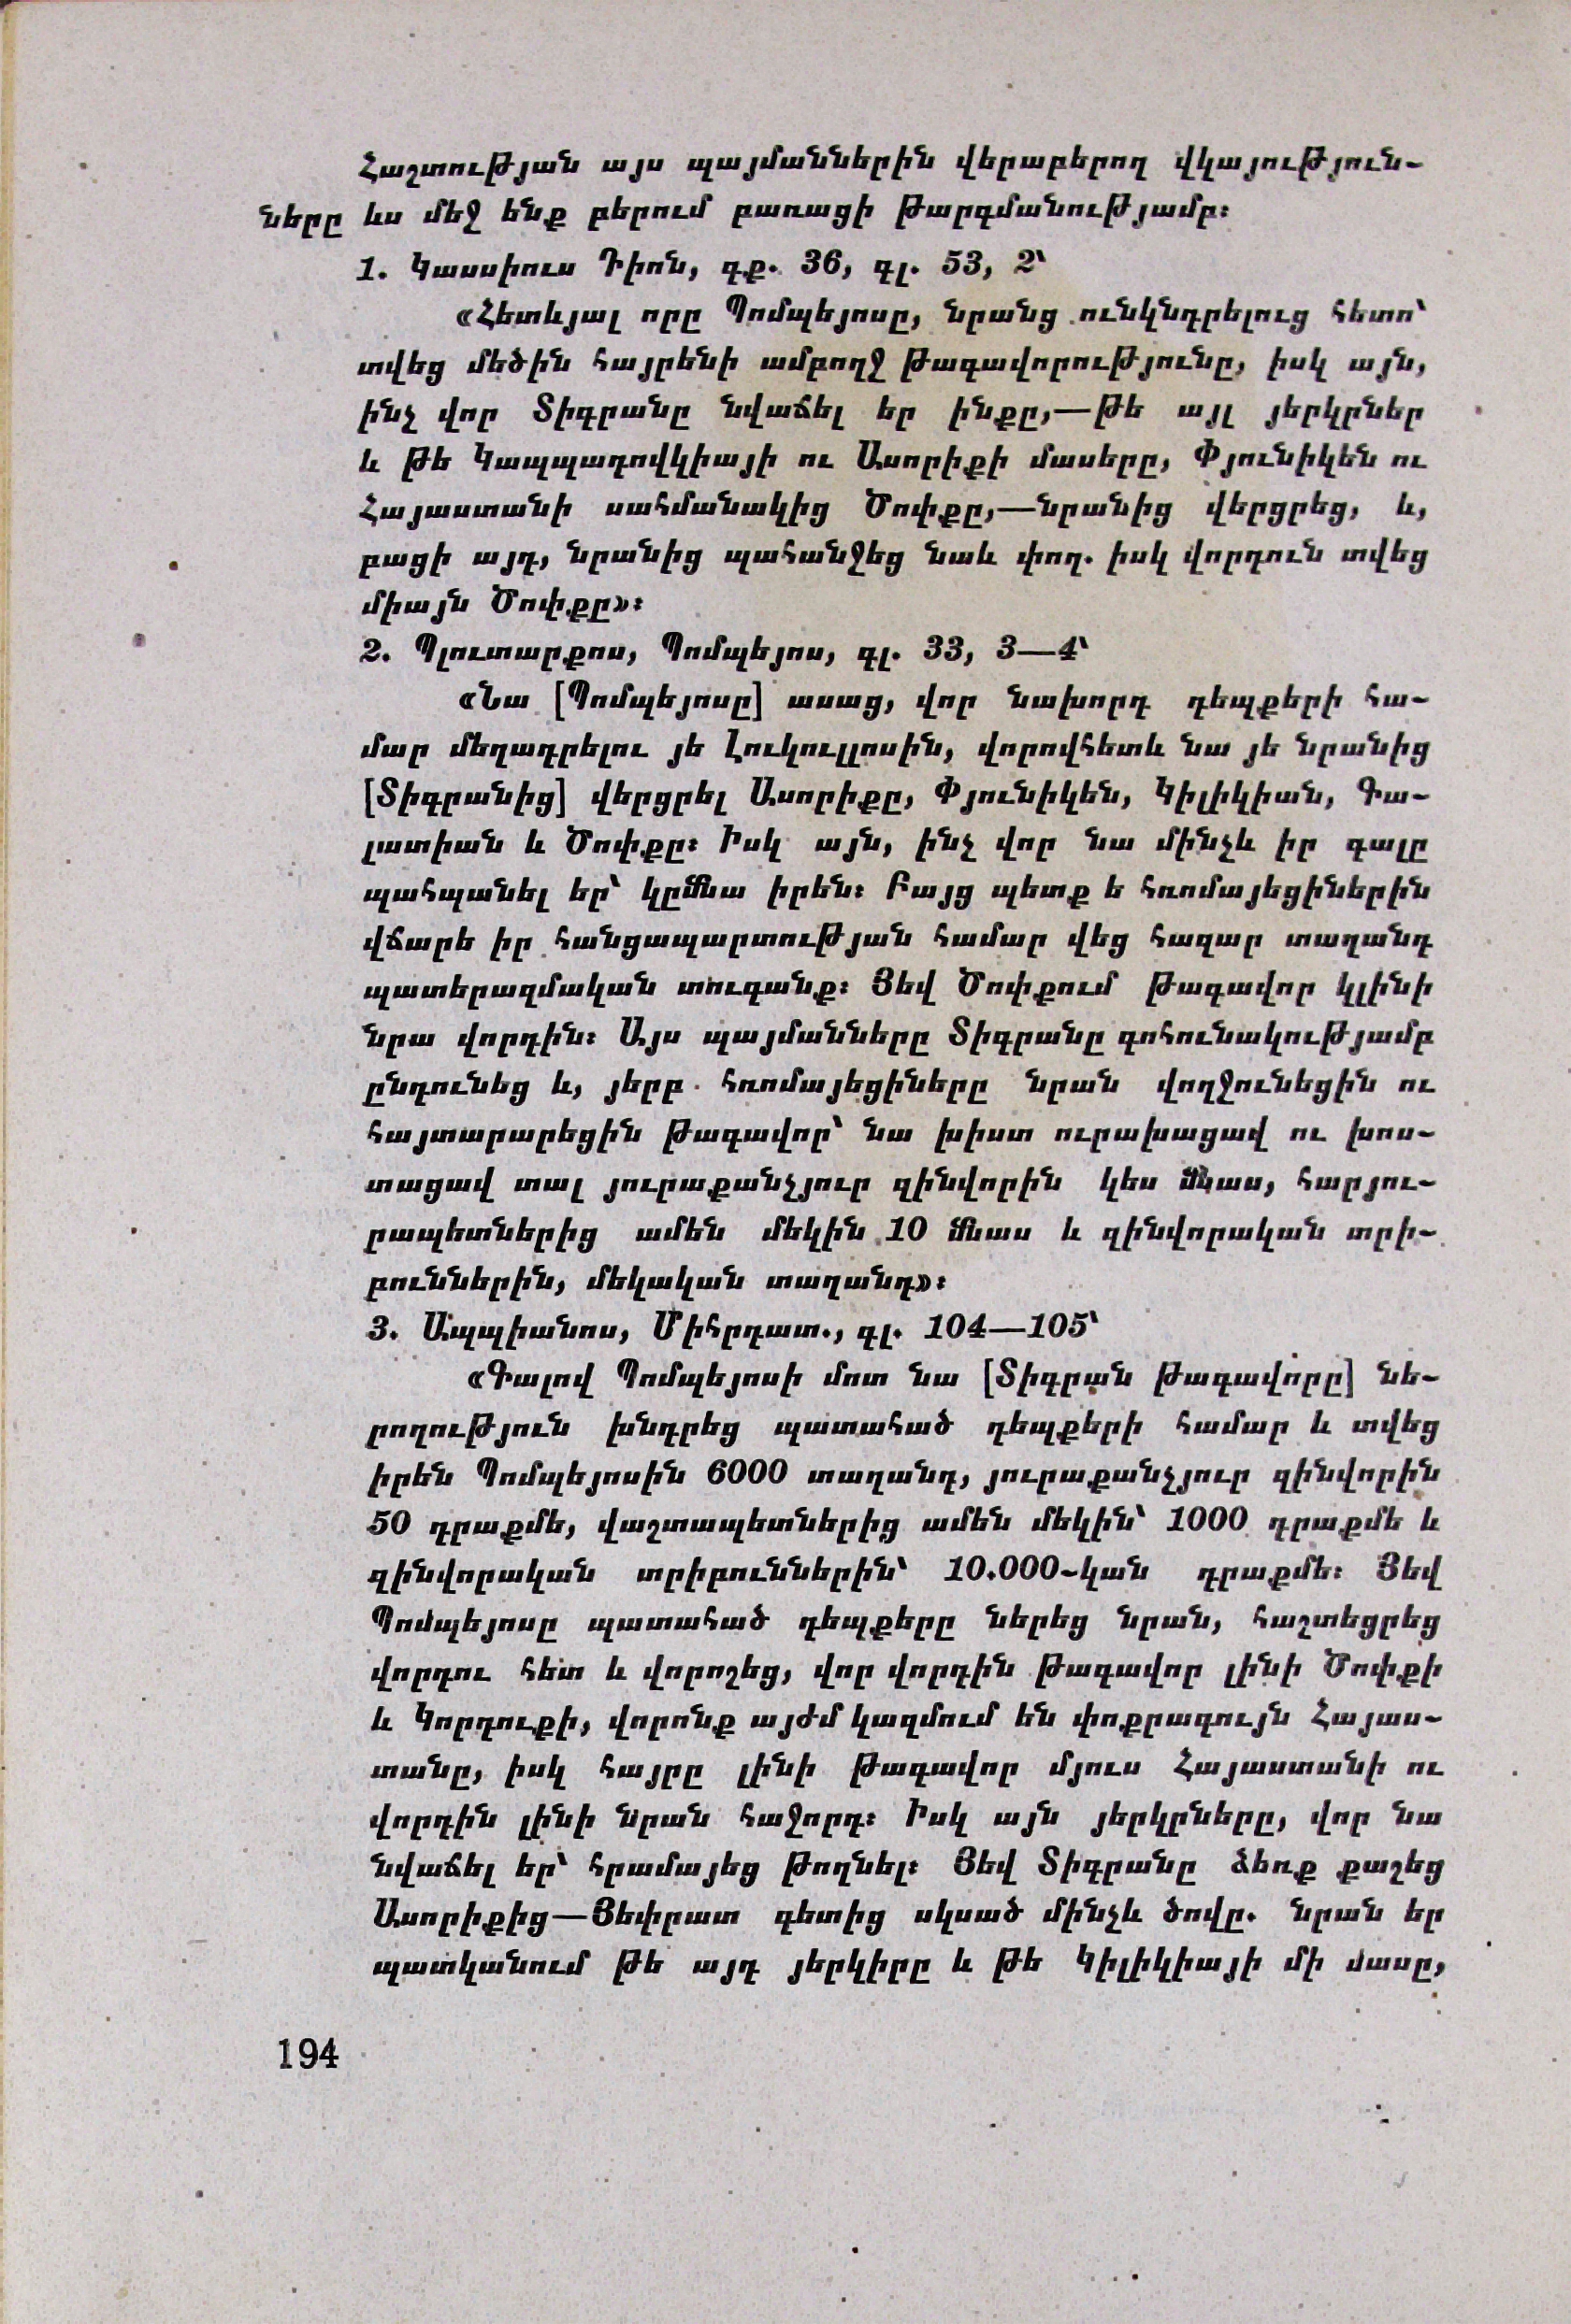 Հաշտության այս պայմաններին վերաբերող վկայություն-
ները ևս մեջ ենք բերում բառացի թարգմանությամբ։
1. Կասսիուս Դիոն, գք. 36, գլ. 53, 2՝
«Հետևյալ որը Պոմպեյոսը, նրանց ունկնդրելուց հետո՝
տվեց մեծին հայրենի ամբողջ թագավորությունը, իսկ այն,
ինչ վոր Տիգրանը նվաճել եր ինքը,—թե այլ յերկրներ
և թե Կապպադովկիայի ու Ասորիքի մասերը, Փյունիկեն ու
Հայաստանի սահմանակից Ծոփքը,—նրանից վերցրեց, և,
բացի այդ, նրանից պահանջեց նաև փող. իսկ վորդուն տվեց
միայն Ծոփքը»։
2. Պլուտարքոս, Պոմպեյոս, գլ. 33, 3—4՝
«Նա [Պոմպեյոսը] ասաց, վոր նախորդ դեպքերի հա-
մար մեղադրելու յե Լուկուլլոսին, վորովհետև նա յե նրանից
[Տիգրանից] վերցրել Ասորիքը, Փյունիկեն, Կիլիկիան, Գա-
լատիան և Ծոփքը։ Իսկ այն, ինչ վոր նա մինչև իր գալը
պահպանել եր՝ կըմնա իրեն։ Բայց պետք ե հռոմայեցիներին
վճարե իր հանցապարտության համար վեց հազար տաղանդ
պատերազմական տուգանք։ Յեվ Ծոփքում թագավոր կլինի
նրա վորդին։ Այս պայմանները Տիգրանը գոհունակությամբ
ընդունեց և, յերբ հռոմայեցիները նրան վողջունեցին ու
հայտարարեցին թագավոր՝ նա խիստ ուրախացավ ու խոս-
տացավ տալ յուրաքանչյուր զինվորին կես մնաս, հարյու-
րապետներից ամեն մեկին 10 մնաս և զինվորական տրի-
բուններին, մեկական տաղանդ»։
3. Ապպիանոս, Միհրդատ., գլ. 104—105՝
«Գալով Պոմպեյոսի մոտ նա [Տիգրան թագավորը] նե-
րողություն խնդրեց պատահած դեպքերի համար և տվեց
իրեն Պոմպեյոսին 6000 տաղանդ, յուրաքանչյուր զինվորին
50 դրաքմե, վաշտապետներից ամեն մեկին՝ 1000 դրաքմե և
զինվորական տրիբուններին՝ 10.000-կան դրաքմե։ Յեվ
Պոմպեյոսը պատահած դեպքերը ներեց նրան, հաշտեցրեց
վորդու հետ և վորոշեց, վոր վորդին թագավոր լինի Ծոփքի
և Կորդուքի, վորոնք այժմ կազմում են փոքրագույն Հայաս-
տանը, իսկ հայրը լինի թագավոր մյուս Հայաստանի ու
վորդին լինի նրան հաջորդ։ Իսկ այն յերկրները, վոր նա
նվաճել եր՝ հրամայեց թողնել։ Յեվ Տիգրանը ձեռք քաշեց
Ասորիքից—Յեփրատ գետից սկսած մինչև ծովը. նրան եր
պատկանում թե այդ յերկիրը և թե Կիլիկիայի մի մասը,
194